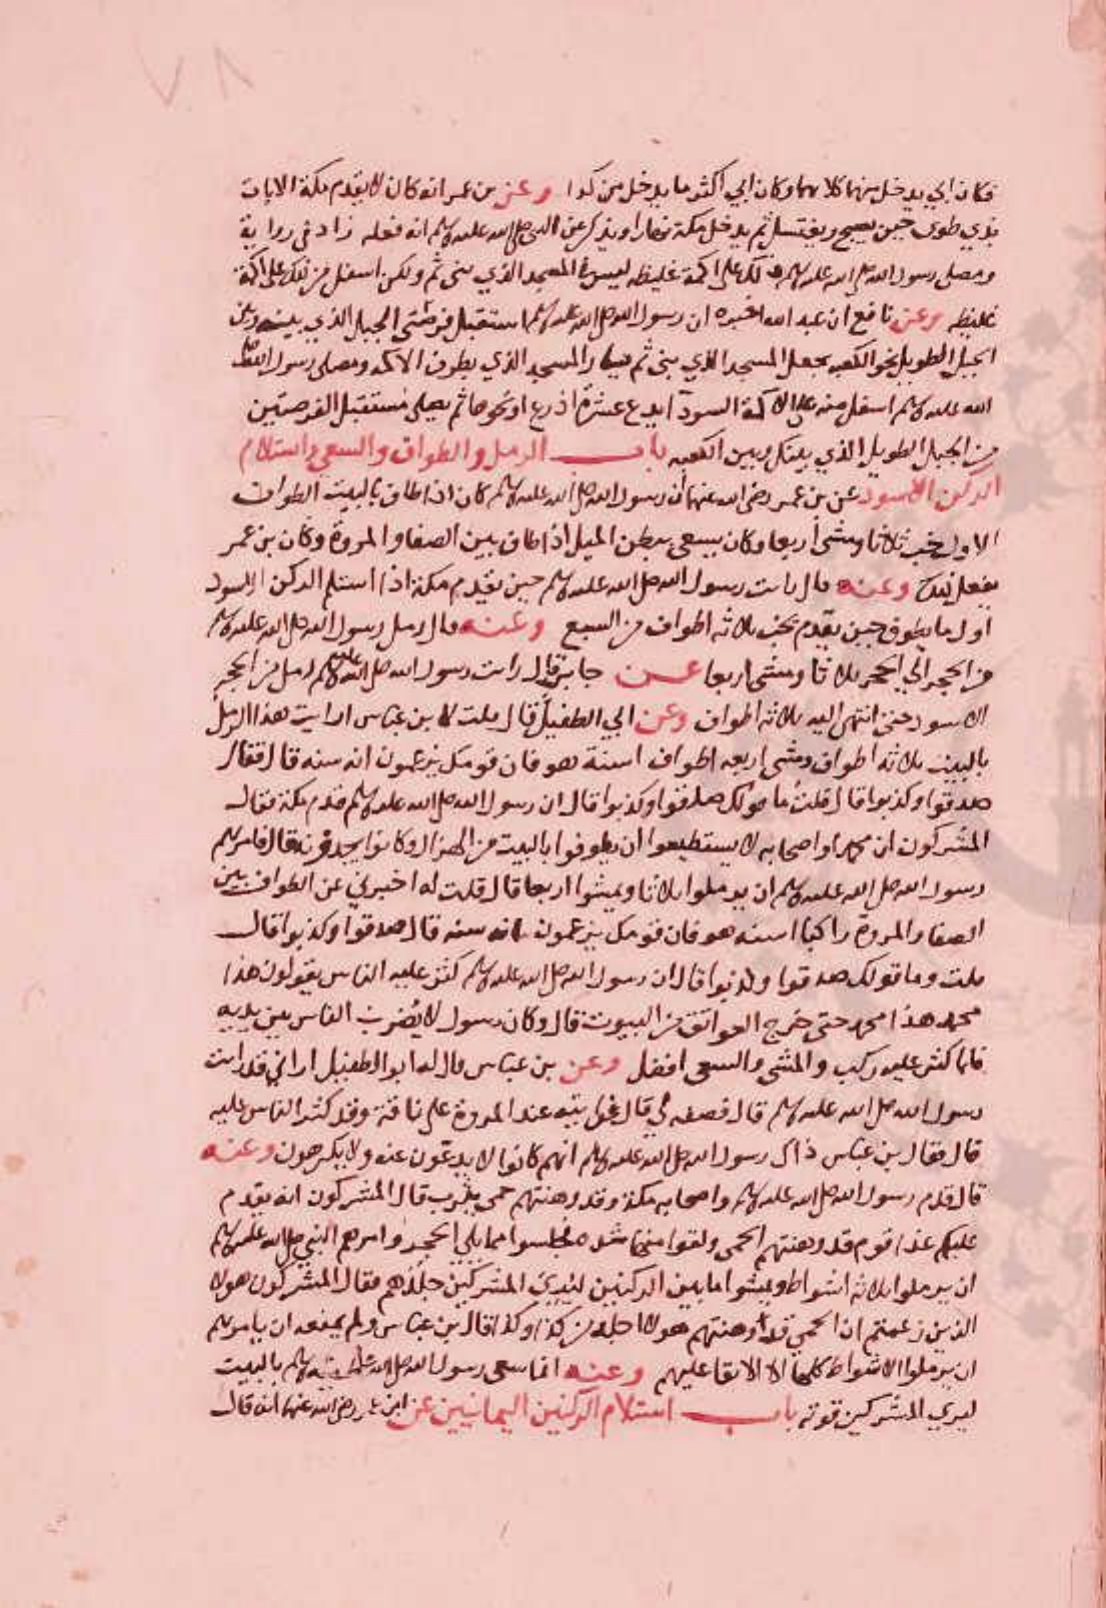 ٧٨
فكان ابي يدخل منهما كلاهما وكان ابي اكثر ما يدخل من كدا وعن بن عمر انه كان لا يقدم مكة الا بات
بذي طوى حين يصبح ويغتسل ثم يدخل مكة نهارا ويذكر عن النبي صلى الله عليه وسلم انه فعله زاد في رواية
ومصلى رسول الله صلى الله عليه وسلم ذلك على اكمة غليظه ليس في المسجد الذي بني ثم ولكن اسفل من ذلك على اكمة
غليظه وعن نافع ان عبد الله اخبره ان رسول الله صلى الله عليه وسلم استقبل فرضتي الجبل الذي بينه وبين
الجبل الطويل نحو الكعبه يجعل المسجد الذي بني ثم يسار المسجد الذي بطرف الاكمه ومصلى رسول الله صلى
الله عليه وسلم اسفل منه على الاكمة السودا يدع عشرة اذرع او نحوها ثم يصلي مستقبل الفرضتين
من الجبل الطويل الذي بينك وبين الكعبه باب الرمل والطواف والسعي واستلام
الركن الاسود عن بن عمر رضي الله عنهما ان رسول الله صلى الله عليه وسلم كان اذا طاف بالبيت الطواف
الاول خب ثلاثا ومشى اربعا وكان يسعى ببطن الميل اذا طاف بين الصفا والمروة وكان بن عمر
يفعل ذلك وعنه قال رايت رسول الله صلى الله عليه وسلم حين يقدم مكة اذا استلم الركن الاسود
اول ما يطوف حين يقدم يخب ثلاثه اطواف من السبع وعنه قال رمل رسول الله صلى الله عليه وسلم
من الحجر الي الحجر ثلاثا ومشى اربعا عن جابر قال رايت رسول الله صلى الله عليه وسلم رمل من الحجر
الاسود حتى انتهى اليه ثلاثه اطواف وعن ابي الطفيل قال قلت لابن عباس ارايت هذا الرمل
بالبيت ثلاثه اطواف ومشي اربعه اطواف اسنة هو فان قومك يزعمون انه سنه قال فقال
صدقوا وكذبوا قال قلت ما قولك صدقوا وكذبوا قال ان رسول الله صلى الله عليه وسلم قدم مكة فقال
المشركون ان محمدا واصحابه لا يستطيعوا ان يطوفوا بالبيت من الهزال وكانوا يحسدونه قال فامرهم
رسول الله صلى الله عليه وسلم ان يرملوا ثلاثا ويمشوا اربعا قال قلت له اخبرني عن الطواف بين
الصفا والمروة راكبا اسنه هو فان قومك يزعمون انه سنه قال صدقوا وكذبوا قال
قلت وما قولك صدقوا وكذبوا قال ان رسول الله صلى الله عليه وسلم كثر عليه الناس يقولون هذا
محمد هذا محمد حتى خرج العواتق من البيوت قال وكان رسول لا يضرب الناس بين يديه
فلما كثر عليه ركب والمشي والسعي افضل وعن بن عباس قال له ابو الطفيل اراني قد رايت
رسول الله صلى الله عليه وسلم قال فصفه لي قال قلت رايته عند المروة على ناقة وقد كثر الناس عليه
قال فقال بن عباس ذاك رسول الله صلى الله عليه وسلم انهم كانوا لا يدعون عنه ولا يكرهون وعنه
قال قدم رسول الله صلى الله عليه وسلم واصحابه مكة وقد وهنتهم حمى يثرب قال المشركون انه يقدم
عليكم غدا قوم قد وهنتهم الحمى ولقوا منها شدة فجلسوا مما يلي الحجر وامرهم النبي صلى الله عليه وسلم
ان يرملوا ثلاثه اشواط ويمشوا ما بين الركنين ليري المشركين جلدهم فقال المشركون هولا
الذين زعمتم ان الحمي قد وهنتهم هولا اجلد من كذا وكذا قال بن عباس ولم يمنعه ان يامرهم
ان يرملوا الاشواط كلها الا الابقا عليهم وعنه انما سعى رسول الله صلى الله عليه وسلم بالبيت
ليري المشركين قوته باب استلام الركنين اليمانيين عن ابن عمر رضي الله عنهما انه قال